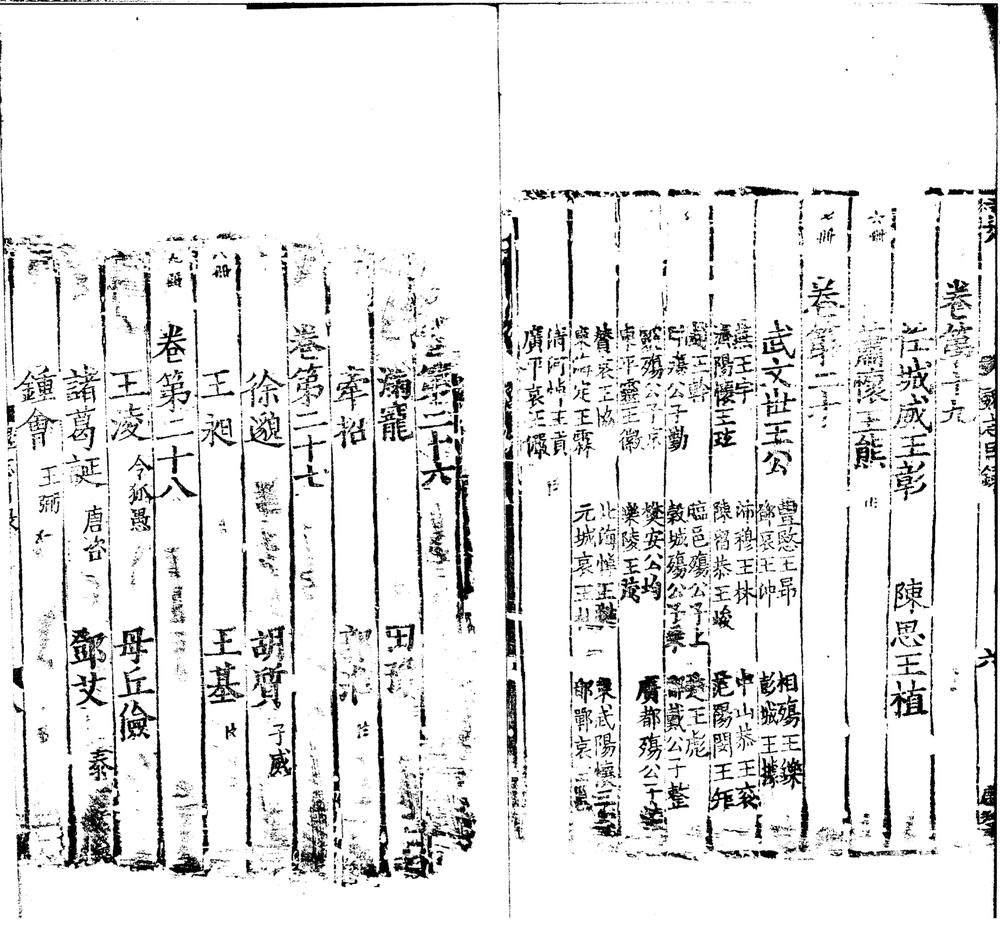 卷第十九
任城威王彰 陳思王植
蕭懷王熊
六冊
卷第二十
七冊
武文世王公
豐愍王昂 相殤王鑠
鄧哀王沖 彭城王據
燕王宇 沛穆王林 中山恭王袞
濟陽懷王玹 陳留恭王峻 范陽閔王矩
趙王幹 臨邑殤公子上 楚王彪
公子勤 穀城殤公子乘 戴公子整
殤公子京 樊安公均 廣都殤公子棘
東平靈王徽 樂陵王茂
贊哀王協 北海悼王蕤 東武陽懷王
東海定王霖 元城哀王 邯鄲哀
清河悼王貢
廣平哀王儼
卷第二十六
滿寵 田豫
牽招 郭淮
卷第二十七
徐邈 胡質 子威
王昶 王基
八冊
卷第二十八
九冊
王凌 令狐愚 毋丘儉
諸葛誕 唐咨 鄧艾 泰
鍾會 王弼